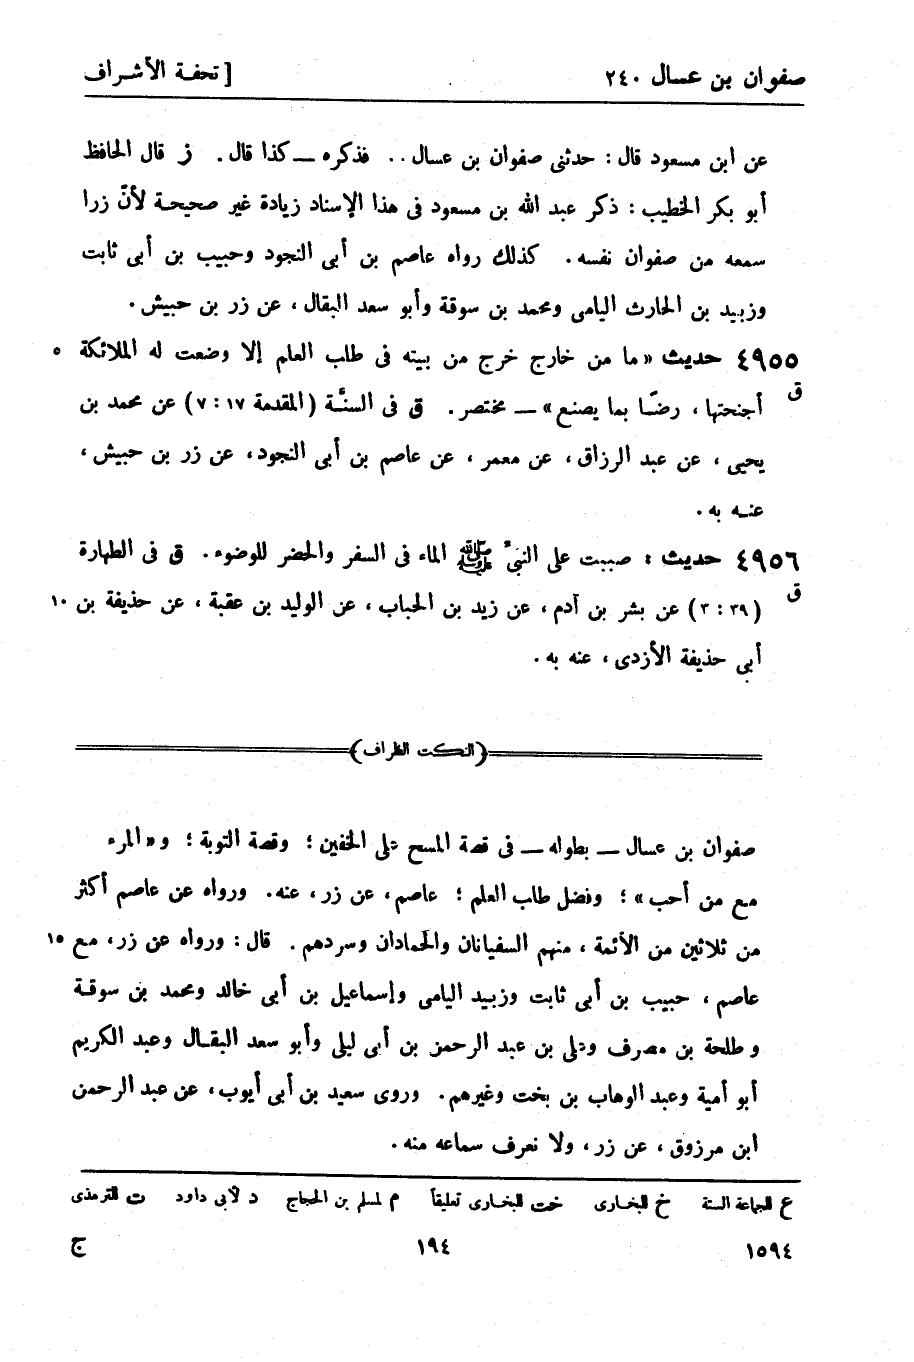 صفوان بن عسال ٢٤٠ [ تحفة الأشراف
عن ابن مسعود قال : حدثنى صفوان بن عسال .. فذكره ــ كذا قال . ز قال الحافظ
أبو بكر الخطيب : ذكر عبد الله بن مسعود فى هذا الإسناد زيادة غير صحيحة لأنّ زرا
سمعه من صفوان نفسه . كذلك رواه عاصم بن أبى النجود وحبيب بن أبى ثابت
وزبيد بن الحارث اليامى ومحمد بن سوقة وأبو سعد البقال ، عن زر بن حبيش .
٤٩٥٥ حديث « ما من خارج خرج من بيته فى طلب العلم إلا وضعت له الملائكة ٥
ق أجنحتها ، رضًا بما يصنع » ــ مختصر . ق فى السنَّة ( المقدمة ١٧ : ٧ ) عن محمد بن
يحيى ، عن عبد الرزاق ، عن معمر ، عن عاصم بن أبى النجود ، عن زر بن حبيش ،
عنه به .
٤٩٥٦ حديث : صببت على النبىّ ﷺ الماء فى السفر والحضر للوضوء . ق فى الطهارة
ق ( ٣٩ : ٣ ) عن بشر بن آدم ، عن زيد بن الحباب ، عن الوليد بن عقبة ، عن حذيفة بن ١٠
أبى حذيفة الأزدى ، عنه به .
( النكت الظراف )
صفوان بن عسال ــ بطوله ــ فى قصة المسح على الخفين ؛ وقصة التوبة ؛ و « المرء
مع من أحب » ؛ وفضل طالب العلم ؛ عاصم ، عن زر ، عنه . ورواه عن عاصم أكثر
من ثلاثين من الأئمة ، منهم السفيانان والحمادان وسردهم . قال : ورواه عن زر ، مع ١٥
عاصم ، حبيب بن أبى ثابت وزبيد اليامى وإسماعيل بن أبى خالد ومحمد بن سوقة
وطلحة بن مصرف وعلى بن عبد الرحمن بن أبى ليلى وأبو سعد البقال وعبد الكريم
أبو أمية وعبد الوهاب بن بخت وغيرهم . وروى سعيد بن أبى أيوب ، عن عبد الرحمن
ابن مرزوق ، عن زر ، ولا نعرف سماعه منه .
ع للجماعة الستة خ للبخارى خت للبخارى تعليقاً م لمسلم بن الحجاج د لأبى داود ت للترمذى
١٥٩٤ ١٩٤ ج